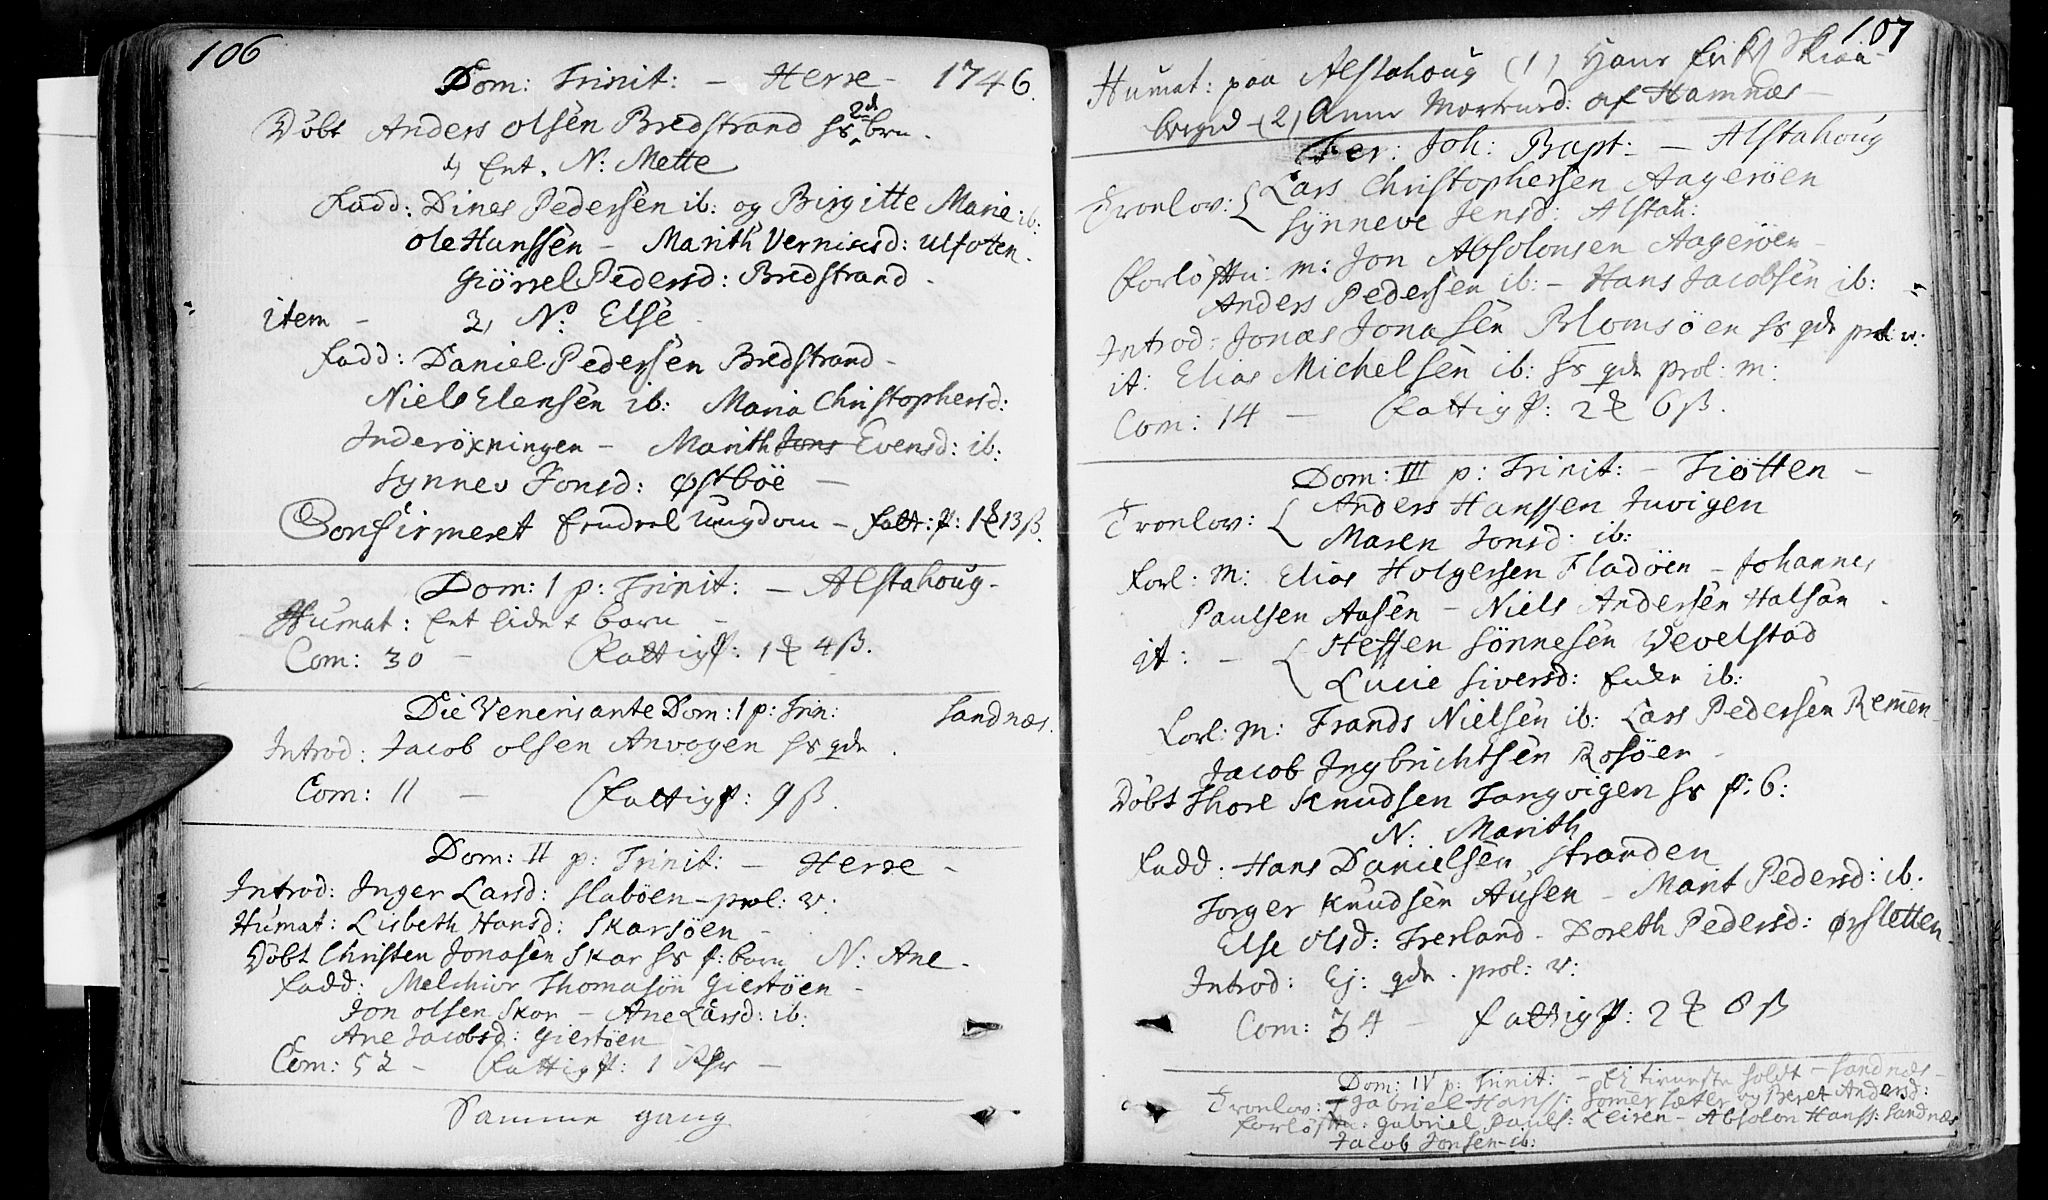 106
Dom: Trinit: – Herøe – 1746.
Døbt Anders Olsen Bredstrand hs 2d brn.
1, Ent. N: Mette
Fadd: Dines Pedersen ib: og Birgitte Marie ib:
Ole Hanssen – Marith Vernisd: Ulfoten.
Giörrel Pedersd: Bredstrand –
item – 2, N: Else
Fadd: Daniel Pedersen Bredstrand –
Niels Elensen ib: Maria Christophersd:
Inderöxningen – Marith Jons Evensd: ib:
Synnev Jonsd: Østböe –
Confirmeret endeel ungdom – Fatt: p: 1 13 ß.
Dom: 1 p: Trinit: – Alstahoug –
Humat: Et lidet barn –
Com: 30 – Fattig p: 1 4 ß.
Die Veneris ante Dom: 1 p: Trin: Sandnæs.
Introd: Jacob Olsen Anvogen hs qde.
Com: 11 – Fattig p: 9 ß.
Dom: II p: Trinit: – Herøe –
Introd: Inger Larsd: Slaböen – prol: v:
Humat: Lisbeth Hansd: Skarsöen –
Døbt Christen Jonasen Skar hs f: barn N: Ane –
Fadd: Melchior Thomasön Giertöen –
Jon Olsen Skar – Ane Larsd: ib:
Ane Jacobsd: Giertöen
Com: 52 – Fattig p: 1
Samme gang
107
Humat: paa Alstahoug (1) Hans
(2) Anne af Hamnæs –
Fer: Joh: Bapt: – Alstahoug
Trorlov: { Lars Christophersen Aageröen
Synneve Jensd: Alstah:
Forlöftn: m: Jon Absolonsen Aageröen –
Anders Pedersen ib: – Hans Jacobsen ib:
Introd: Jonas Jonasen Blomsöen hs qde prol: v:
it: Elias Michelsen ib: hs qde prol: m:
Com: 14 – Fattig p: 2 6 ß.
Dom: III p: Trinit: – Tiötten –
Trorlov: { Anders Hanssen Juvigen
Maren Jonsd: ib:
Forl: m: Elias Holgersen Fladöen – Johannes
Paulsen Aasen – Niels Andersen Halsan –
it: – { Steffen Sönnesen Vevelstad
Lucie Siversd: Enke ib:
Forl: m: Frands Nielsen ib: Lars Pedersen Remen
Jacob Ingbrichtsen Rosöen –
Døbt Thore Knudsen Tangvigen hs f: b:
N: Marith
Fadd: Hans Danielsen Stranden
Torger Knudsen Ausen – Marit Pedersd: ib.
Else Olsd: Trerland – Doreth Pedersd: Ørsletten –
Introd: Ej: qde. prol: v:
Com: 34 – Fattig p: 2 8 ß
Dom: IV p: Trinit: – Sandnæs –
Trorlov: { Gabriel Hanss: Somersæter og Beret Andersd:
Forlöftn: Gabriel Pauls: Leiren – Absolon Hanss: Sandnæs
Jacob Jonsen ib: